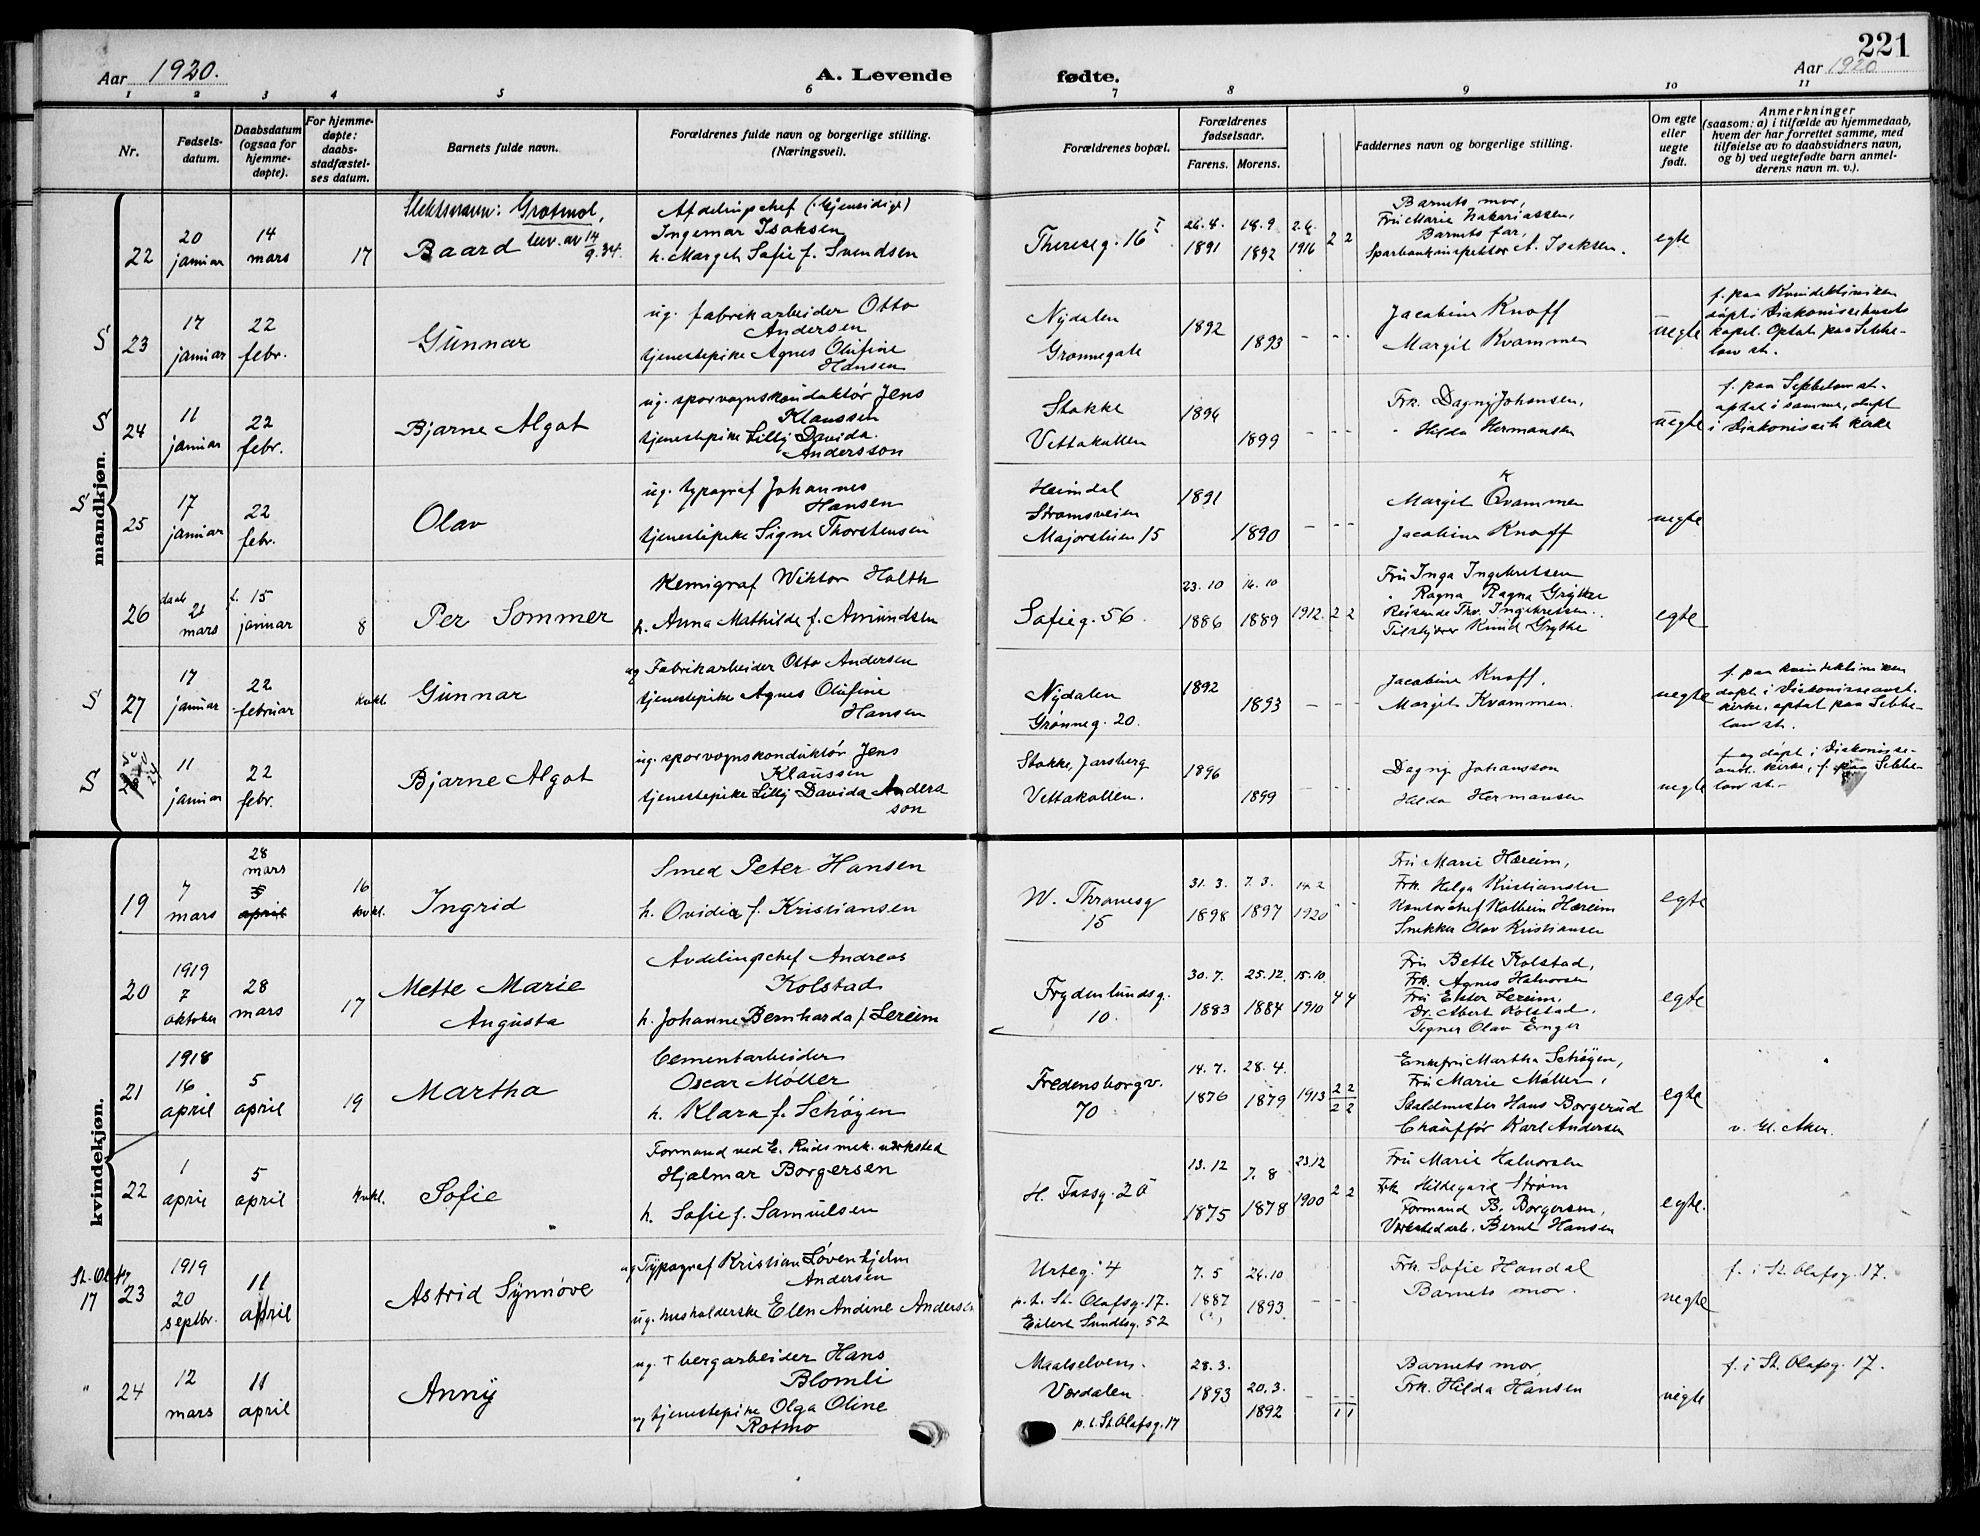 221
Aar 1920.
A. Levende fødte.
Aar 1920
1 2 3 4 5 6 7 8 9 10 11
Nr.
Fødsels-
datum.
Daabsdatum
(ogsaa for
hjemme-
døpte).
For hjemme-
døpte:
daabs-
stadfæstel-
ses datum.
Barnets fulde navn.
Forældrenes fulde navn og borgerlige stilling.
(Næringsvei).
Forældrenes bopæl.
Forældrenes
fødselsaar.
Farens. Morens.
Faddernes navn og borgerlige stilling.
Om egte
eller
uegte
født.
Anmerkninger
(saasom: a) i tilfælde av hjemmedaab,
hvem der har forrettet samme, med
tilføielse av to daabsvidners navn,
og b) ved uegtefødte barn anmel-
derens navn m. v.).
mandkjøn.
22
20
januar
14
mars
17
Slektsnavn: Grotmol,
Baard bev. av 14/9.34.
Afdelingschef (Gjensidige)
Ingemar Isaksen
h. Margit Sofie f. Svendsen
Thereseg. 16 I
26.4.
1891
18.9
1892
2.6
1916
2 2
Barnets mor,
Fru Marie Zakariassen,
Barnets far,
Sparbankinspektør A. Isaksen.
egte
S
23
17
januar
22
febr.
Gunnar
ug. fabrikarbeider Otto
Andersen
tjenestepike Agnes Olufine
Hansen
Nydalen
Grønnegate
1892
1893
- - -
Jacobine Knoff
Margit Kvammen
uegte
f. paa Kvindeklinikken
døpt i Diakonissehusets
kapel. Optat paa Sebbe-
low st.
S
24
11
januar
22
febr.
Bjarne Algot
ug. sporvognskonduktør Jens
Klaussen
tjenestepike Lilly Davida
Andersson
Stokke
Vettakollen
1896
1899
- - -
Frk. Dagny Johansen,
" Hilda Hermansen
uegte
f. paa Sebbelow st.
optat i samme, døpt
i Diakonisseh. kirke
S
25
17
januar
22
febr.
Olav
ug. typograf Johannes
Hansen
tjenestepike Signe Thorstensen
Heimdal
Strømsveien
Majorstuen 15
1891
1890
- - -
K
Margit Qvammen
Jacobine Knoff
uegte
26
daab
21
mars
f. 15
januar
8
Per Sommer
Kemigraf Wiktor Holth
h. Anna Mathilde f. Amundsen
Sofieg. 56.
23.10
1886
16.10
1889
1912.
2 2
Fru Inga Ingebretsen
" Ragna Ragna Grytke
Reisende Thv. Ingebretsen.
Tilskjærer Knut Grytke
egte
S
27
17
januar
22
februar
kvkl.
Gunnar
ug Fabrikarbeider Otto Andersen
tjenestepike Agnes Olufine
Hansen
Nydalen
Grønneg. 20.
1892
1893
- - -
Jacobine Knoff.
Margit Kvammen.
uegte
f. paa kvindeklinikken
døpt i Diakonisseanst.
kirke, optat paa Sebbe-
low st.
S
11
januar
22
febr.
Bjarne Algot
ug. sporvognskonduktør Jens
Klaussen
tjenestepike Lilly Davida Anders
son
Stokke, Jarsberg
Vettakollen.
1896
1899
- - -
Dagny Johansson
Hilda Hermansen
uegte
f. og døpt i Diakonisse-
anst. kirke, f. paa Sebbe-
low st.
kvindekjøn.
19
7
mars
28
mars
5
april
16
kvkl.
Ingrid
Smed Peter Hansen
h. Ovidia f. Kristiansen
W. Thranesg
15
31.3.
1898
7.3.
1897
14.2
1920
Fru Marie Hæreim,
Frk. Helga Kristiansen
Kontorchef Kolbein Hæreim
Snekker Olav Kristiansen
egte
20
1919
7
oktober
28
mars
17
Mette Marie
Augusta
Avdelingschef Andreas
Kolstad
h. Johanne Bernharda f. Lereim
Frydenlundsg.
10.
30.7.
1883
25.12.
1884
15.10.
1910
4 4
Fru Bette Kolstad,
Frk. Agnes Halvorsen
Fru Ester Lereim,
Dr. Albert Kolstad,
Tegner Olav Enger
egte
21
1918
16
april
5
april
19
Martha
Cementarbeider
Oscar Møller
h. Klara f. Schøyen
Fredensborgv.
70
14.7.
1876
28.4.
1879
1913
2 2
2 2
Enkefru Martha Schøyen,
Fru Marie Møller,
Staldmester Hans Borgerud
Chauffør Karl Andersen
egte
v. Gl. Aker.
22
1
april
5
april
kvkl.
Sofie
Formand ved E. Ruds mek. verksted
Hjalmar Borgersen
h. Sofie f. Samuelsen
H. Tassg. 20
13.12
1875
7.8
1878
23.12
1900
2 2
Fru Marie Halvorsen
Frk Hildegard Strøm
Formand B. Borgersen,
Verkstedarb. Bernt Hansen
egte.
St. Ol. g
17
23
1919
20
septbr.
11
april
Astrid Synnøve
ug Typograf Kristian Løvenhjelm
Andersen
ug. husholderske Elen Andine Andersen
Urteg. 4
p.t. St. Olafsg. 17.
Eilert Sundtsg. 52
7.5
1887
(?)
26.10
1893
- - -
Frk. Sofie Handal
Barnets mor.
uegte
f. i St. Olafsg. 17.
"
24
12
mars
11
april
Anny
ug. + bergarbeider Hans
Blomli
ug tjenestepike Olga Oline
Rotmo
Maalselven.
Værdalen
p.t. St. Olafsg. 17
28.3.
1893
20.3.
1892
- - -
1 1
Barnets mor
Frk. Hilda Hansen
uegte
f. i St. Olafsg. 17.